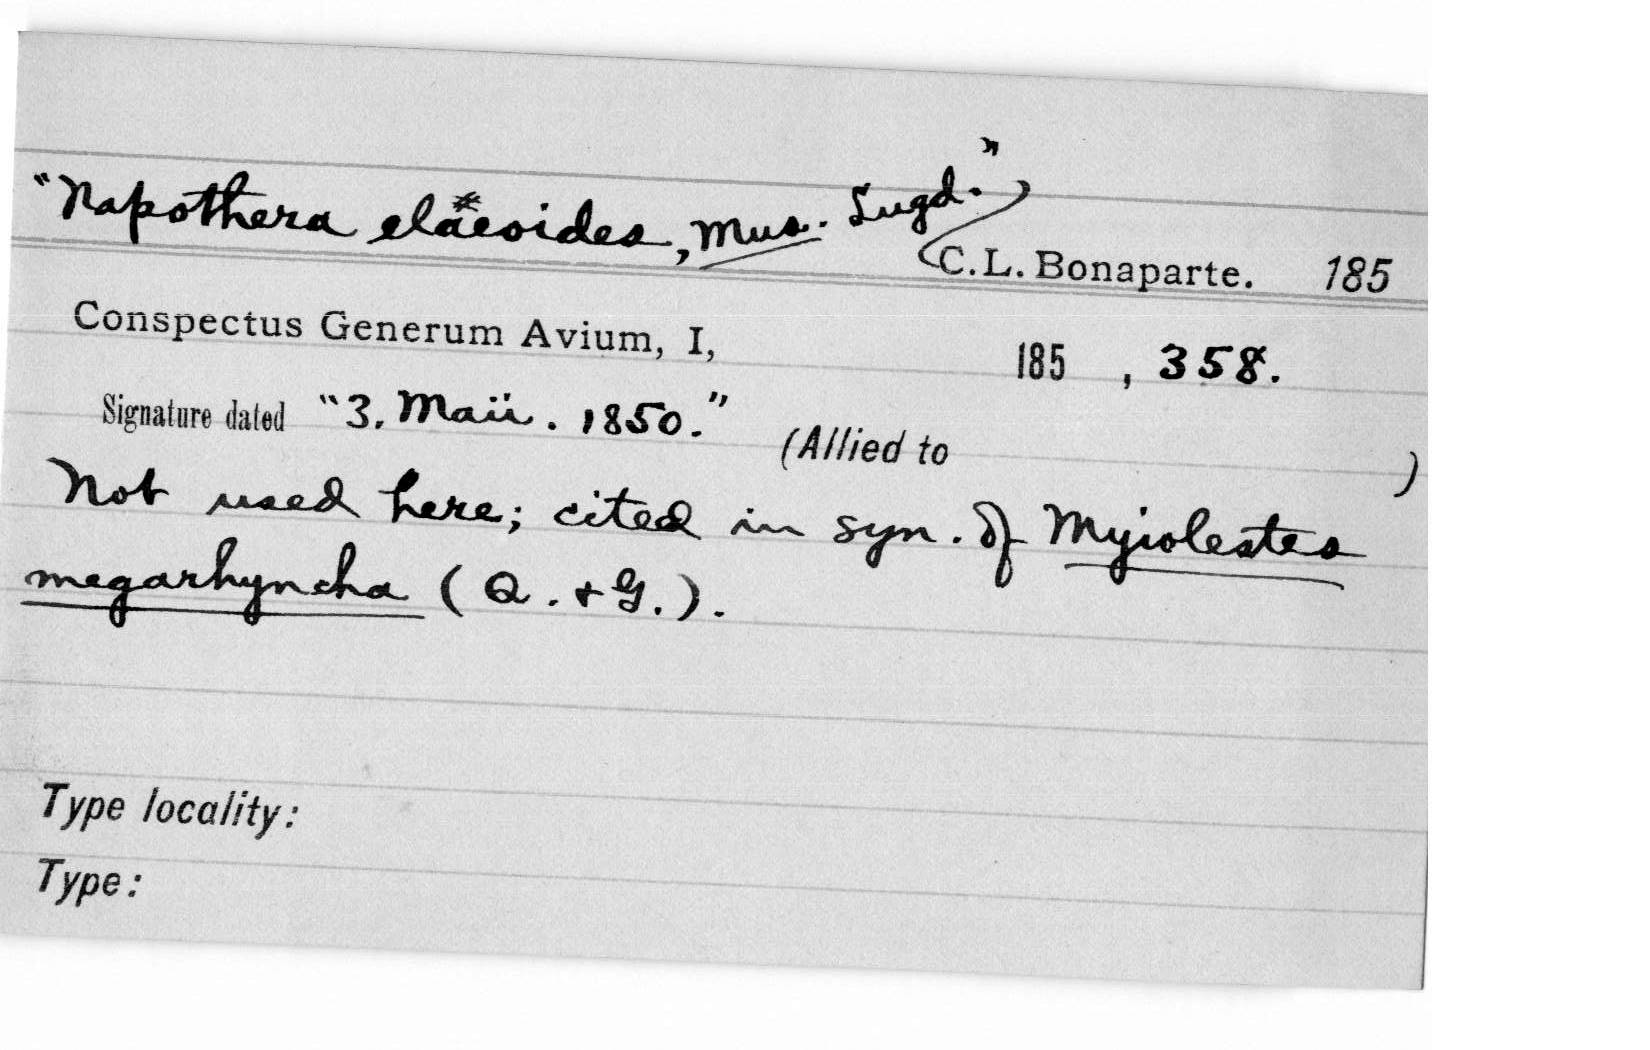 "Napothera elaeoides, Mus. Lugd."
C.L. Bonaparte. 185
Conspectus Generum Avium, I, 185 , 358.
Signature dated "3. Maii. 1850." (Allied to )
Not used here; cited in syn. of Myiolestes
megarhyncha (Q. + G.).
Type locality:
Type: